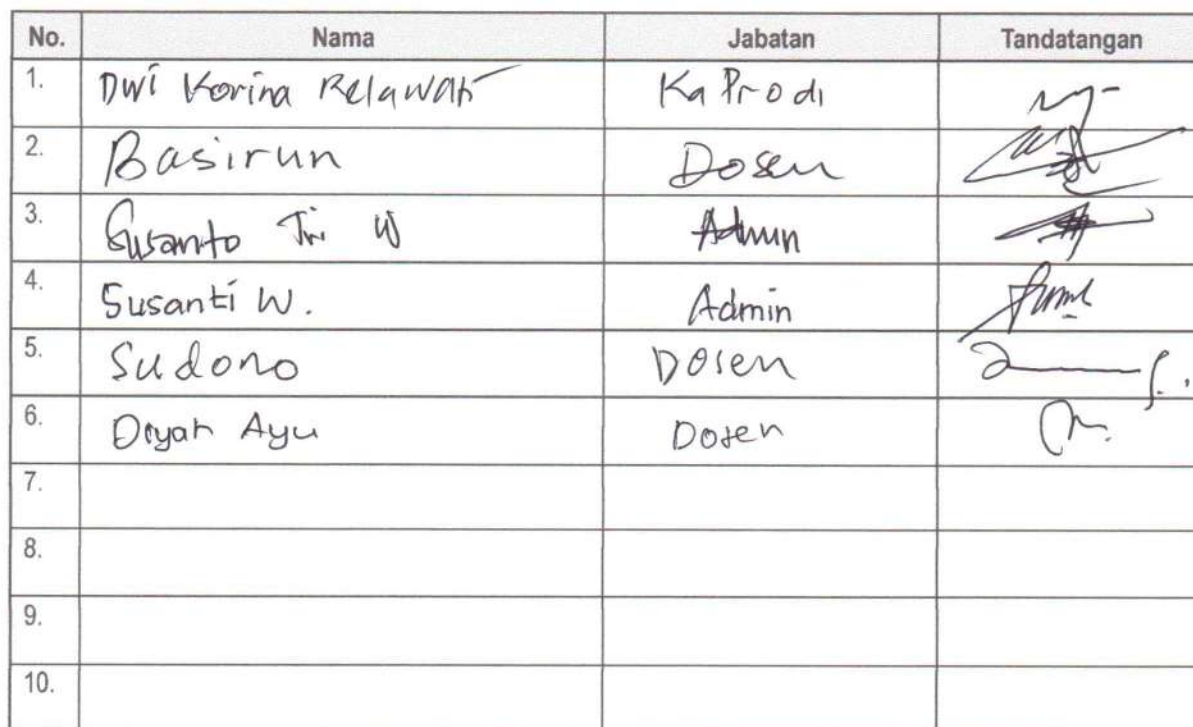 No. Nama Jabatan Tandatangan
1. Dwi Korina Relawati Ka Prodi
2. Basirun Dosen
3. Susanto Tri W Admin
4. Susanti W. Admin
5. Sudono Dosen
6. Dyah Ayu Dosen
7.
8.
9.
10.